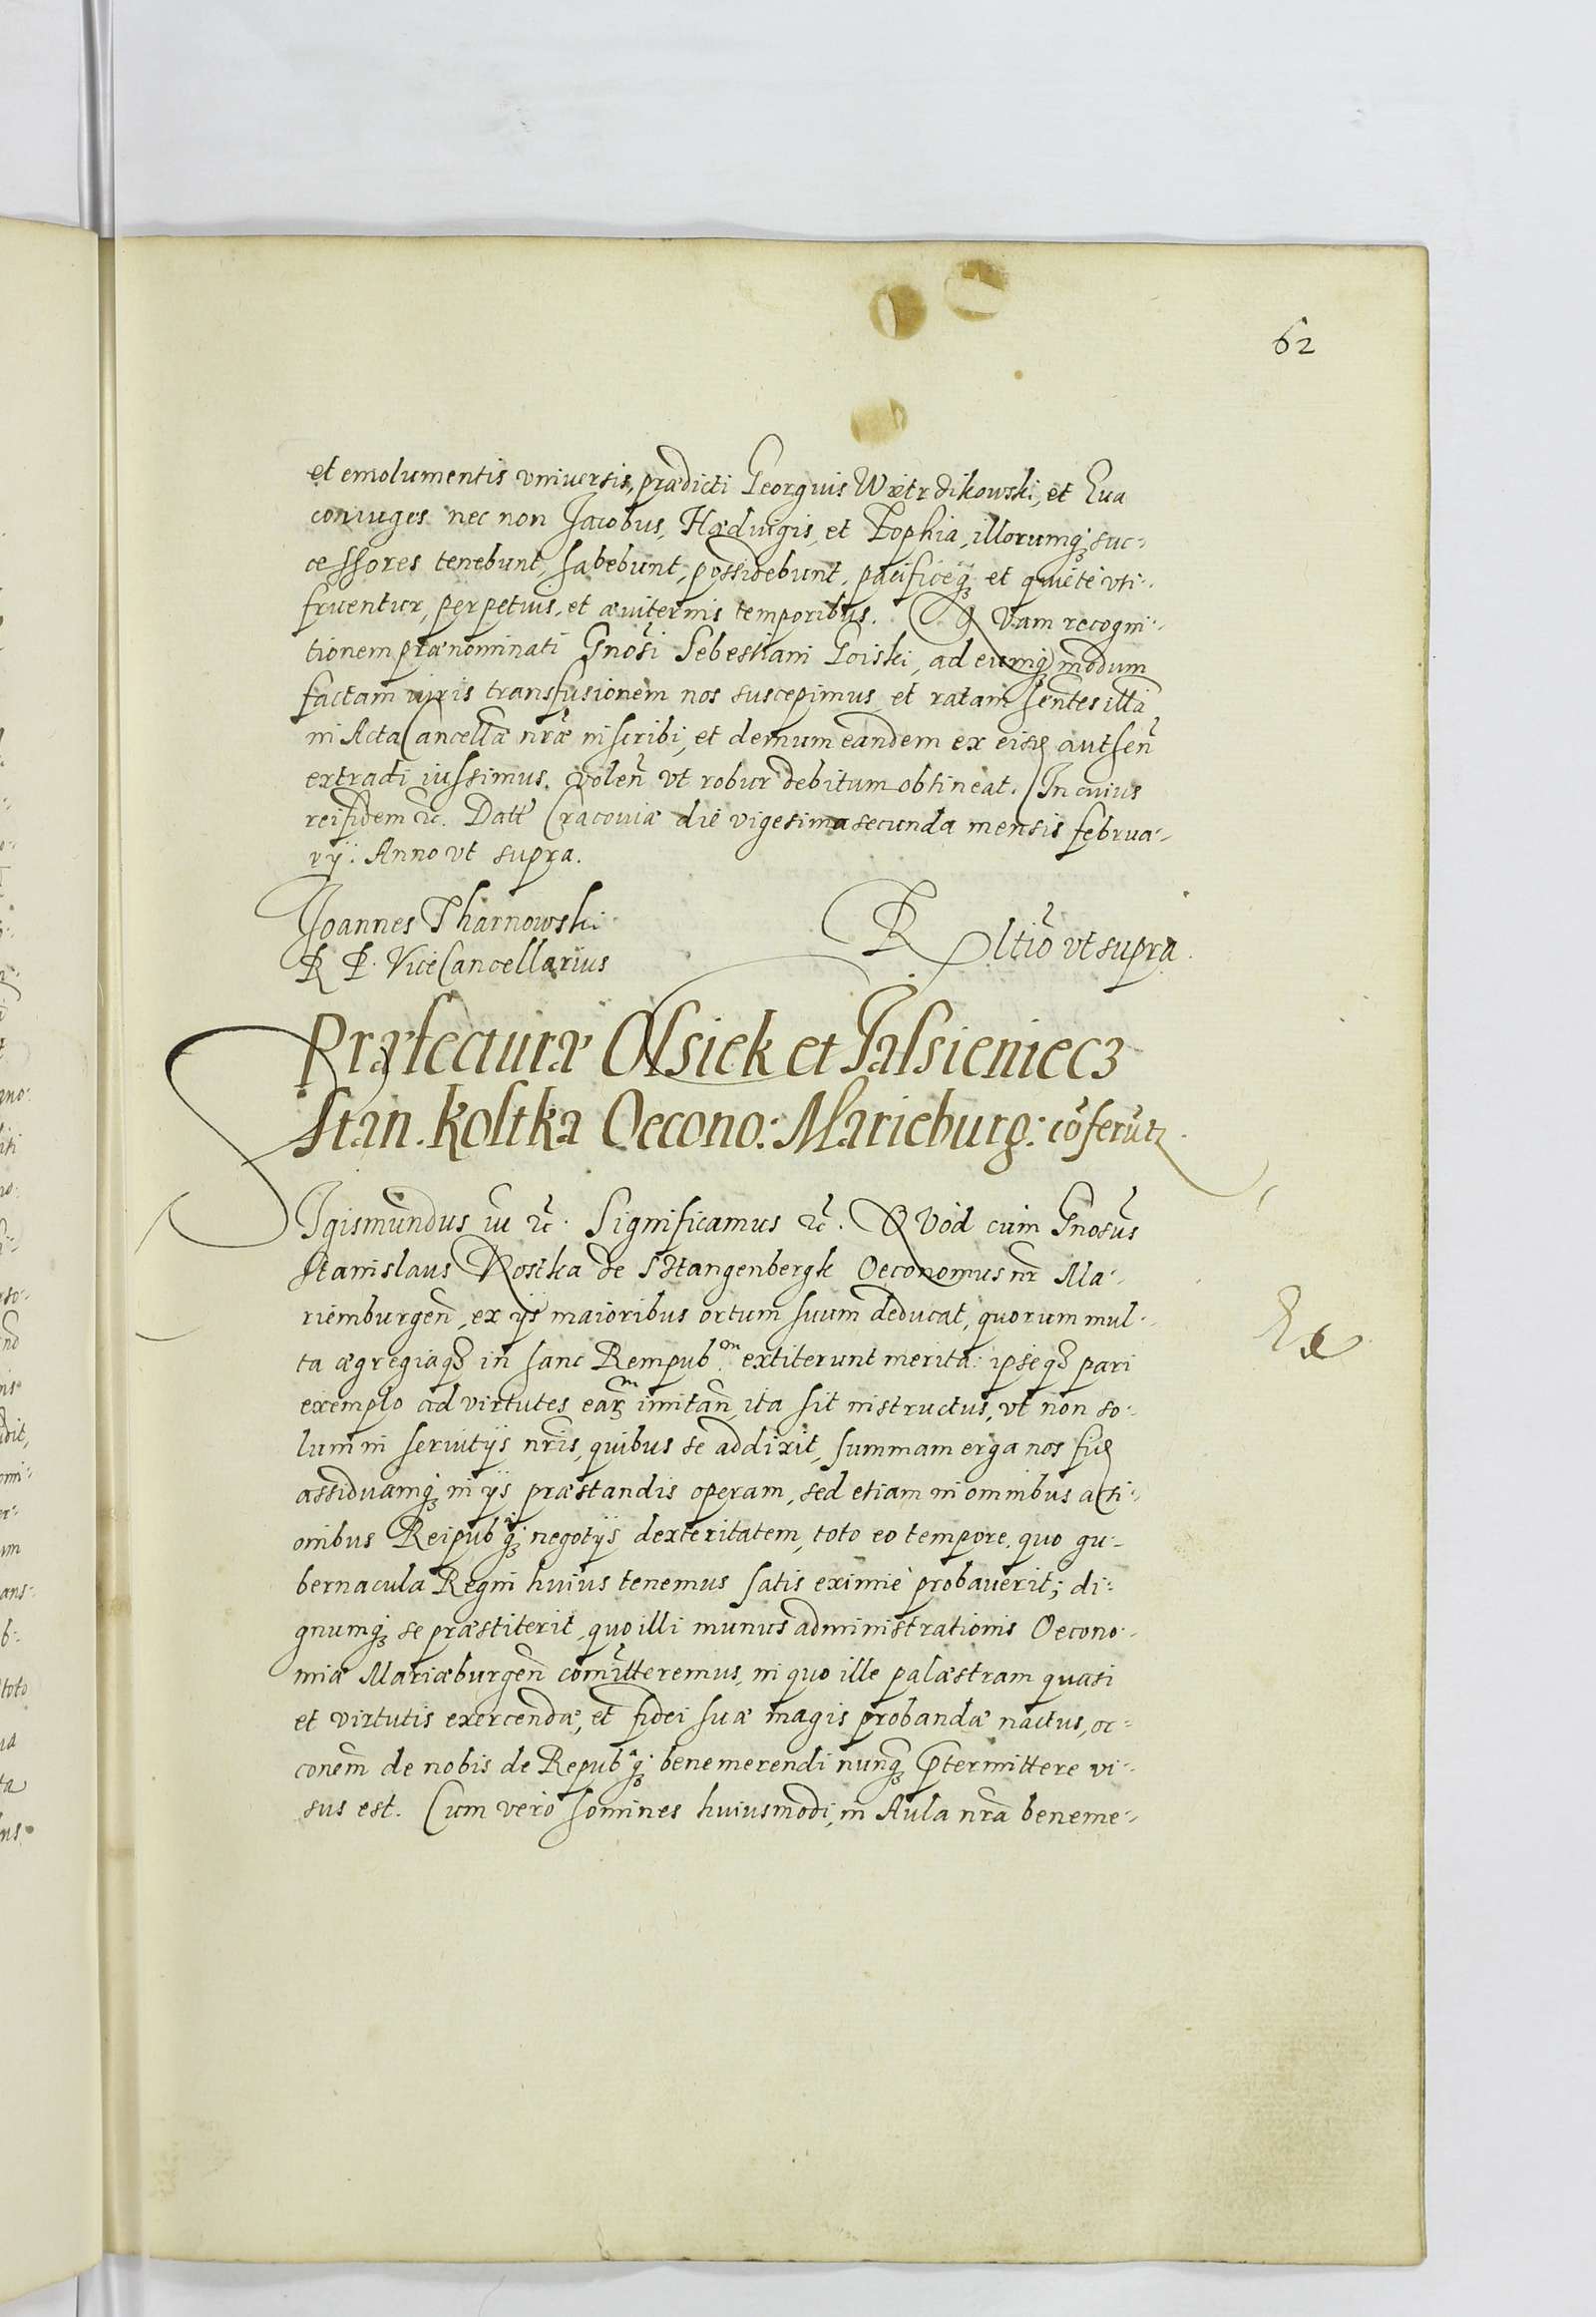 62
et emolumentis vniuersis, prædicti Georguis Wætrdikowski, et Eua
coniuges nec non Jacobus, Hæduigis, et Zophia, illorumq₃ suc-
cessores tenebunt, habebunt, possidebunt, pacificeq₃ et quiete vti-
fruentur, perpetuis, et æuiternis temporibus. QVam recogni-
tionem prænominati Gnosi Sebestiani Goiski, ad eumq₃ modum
factam iuris transfusionem nos suscepimus et ratam hentes illā
in Acta Cancellæ nræ inscribi, et demum eandem ex eisd authen̄
extradi iussimus. volen̄ vt robur debitum obtineat. In cuius
rei fidem ꝛc. Datt Cracouiæ die vigesima secunda mensis februa-
rÿ. Anno vt supra.
Joannes Tharnowski
R P. ViceCancellarius
R ltiō vt supra.
Præfecturæ Ossiek et Jassieniecz
Stan. Kostka Oecono: Marieburg: cōferūtz
SIgismundus iii ꝛc. Significamus ꝛc. QVod cum Gnosus
Stanislaus Kostka de Shtangenbergk Oeconomus nr̄ Ma-
riemburgen̄, ex ijs maioribus ortum suum deducat, quorum mul-
ta ægregiaq₃ in hanc Rempub.cm extiterunt merita: ipseq₃ pari
exemplo ad virtutes earm imitan̄, ita sit instructus, vt non so-
lum in seruitijs nris, quibus se addixit, summam erga nos fid
assiduamq₃ in ijs præstandis operam, sed etiam in omnibus acti-
onibus Reipub q₃ negotijs dexteritatem, toto eo tempore, quo gu-
bernacula Regni huius tenemus satis eximiè probauerit; di-
gnumq₃ se præstiterit, quo illi munus administrationis Oecono-
miæ Mariæburgen̄ comitteremus, in quo ille palæstram quasi
et virtutis exercendæ, et fidei suæ magis probandæ nactus, oc-
conem de nobis de Repub q₃ benemerendi nunq₃ ptermittere vi-
sus est. Cum vero homines huiusmodi, in Aula nra beneme-